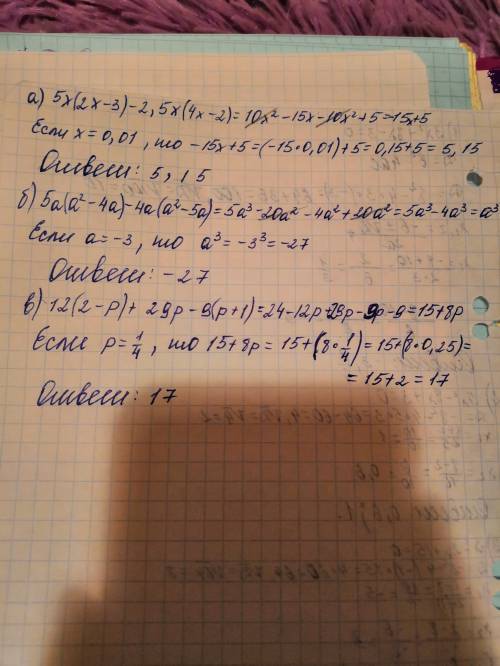 а) 5x(2x-3)-2,5x(4x-2)=10x²-15x-10x²+5=-15x+5
Если x=0,01, то -15x+5=(-15·0,01)+5=0,15+5=5,15
Ответ: 5,15
б) 5a(a²-4a)-4a(a²-5a)=5a³-20a²-4a²+20a²=5a³-4a³=a³
Если a=-3, то a³=-3³=-27
Ответ: -27
в) 12(2-p)+29p-9(p+1)=24-12p+29p-9p-9=15+8p
Если p=1/4, то 15+8p=15+(8·1/4)=15+(8·0,25)=
=15+2=17
Ответ: 17